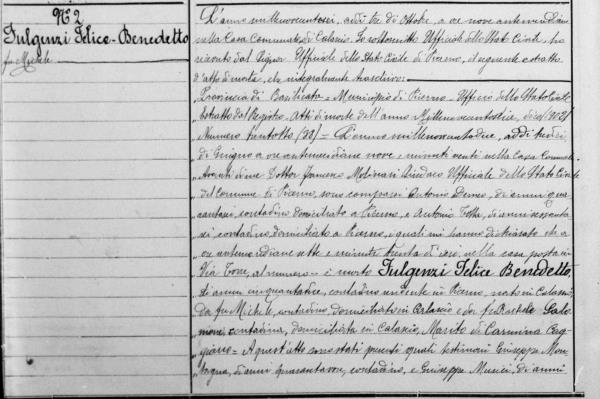 N° 2
Fulgenzi Felice Benedetto
fu Michele
L'anno millenovecentosei, addì tre di Ottobre, a ore nove antimeridiane
nella Casa Comunale di Calascio. Io sottoscritto Ufficiale dello Stato Civile, ho
ricevuto dal Signor Ufficiale dello Stato Civile di Picerno, il seguente estratto
d'atto di morte, che integralmente trascrivo:
"Provincia di Basilicata = Municipio di Picerno = Ufficio dello Stato Civile
"Estratto dal Registro Atti di morte dell'anno
"Numero ventotto (28) = L'anno addì tredici
"di Giugno a ore antimeridiane nove e minuti venti nella Casa Comunale
"Avanti di me Dottor Molinari Sindaco Ufficiale dello Stato Civile
"del Comune di Picerno, sono comparsi Antonio di anni qua
"rantasei, contadino domiciliato a Picerno, e Antonio di anni sessanta
"sei contadino domiciliato a Picerno, i quali mi hanno dichiarato che a
"ore antimeridiane sette e minuti trenta di ieri, nella casa posta in
"Via Torre, al numero = è morto Fulgenzi Felice Benedetto,
"di anni cinquantadue, contadino residente in Picerno, nato in Calascio,
"da fu Michele, contadino, domiciliato in Calascio, e da fu
contadina, domiciliata in Calascio, Marito di Carmina Cag
"giano = A quest'atto sono stati presenti quali testimoni Giuseppe Mon
"tagna, di anni quarantanove, contadino, e Giuseppe di anni